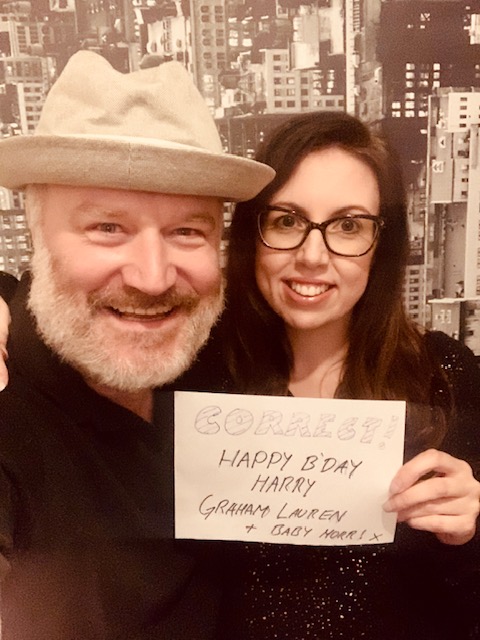 CORRECT!!
HAPPY B'DAY
HARRY
GRAHAM LAUREN
+ BABY MORRIS x